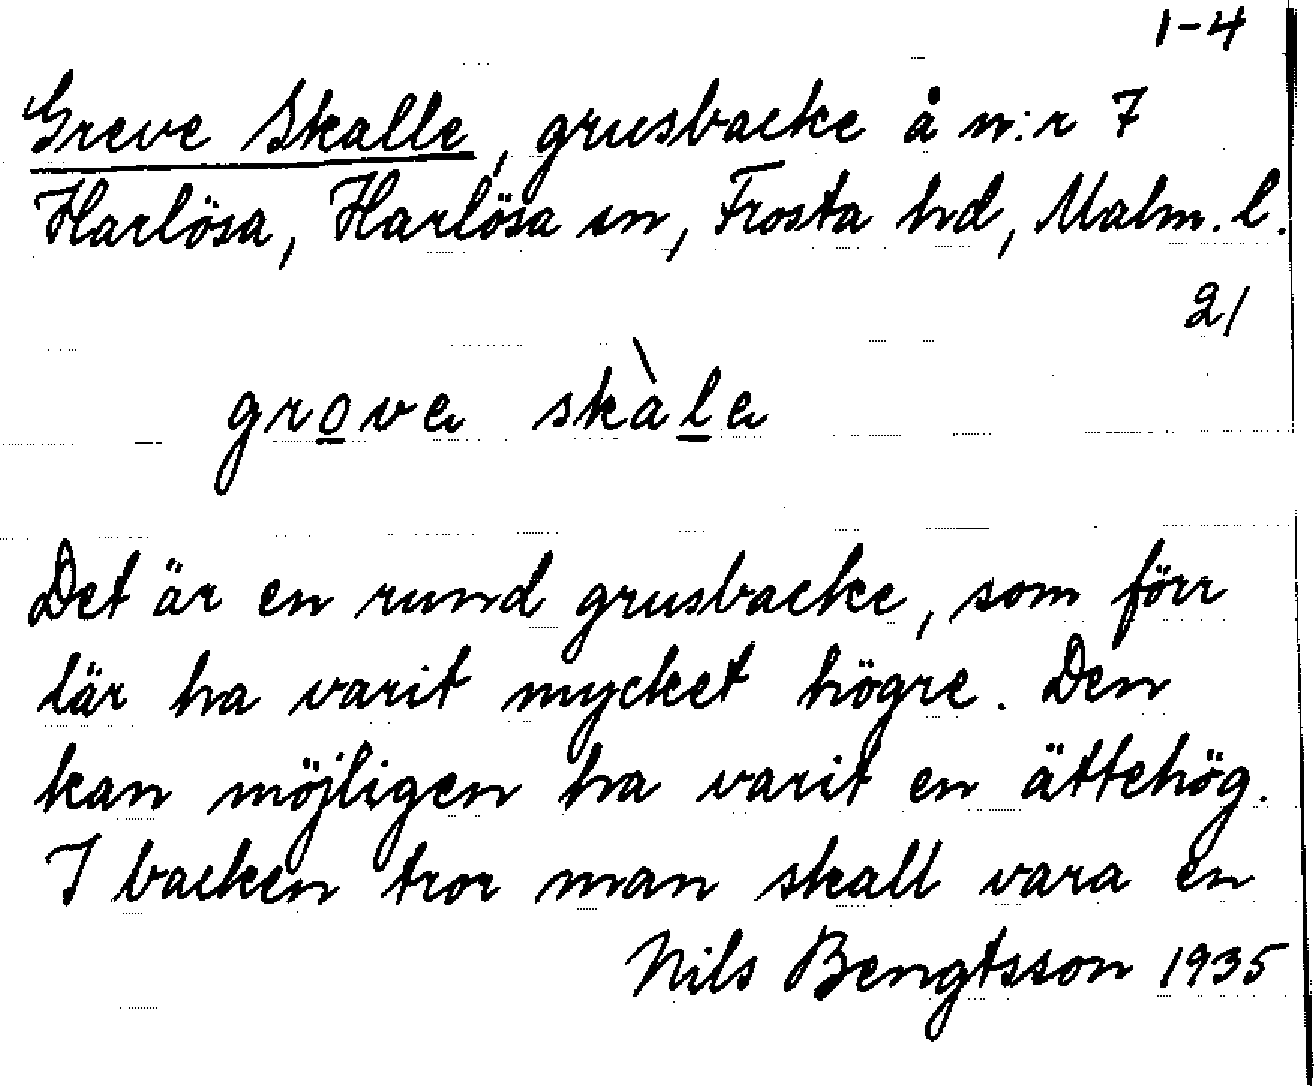 1-4
Greve Skalle, grusbacke å n:r 7
Harlösa, Harlösa sn, Frosta hd, Malm. l.
21
grove skàle
Det är en rund grusbacke, som förr
lär ha varit mycket högre. Den
kan möjligen ha varit en ättehög.
I backen tror man skall vara en
Nils Bengtsson 1935